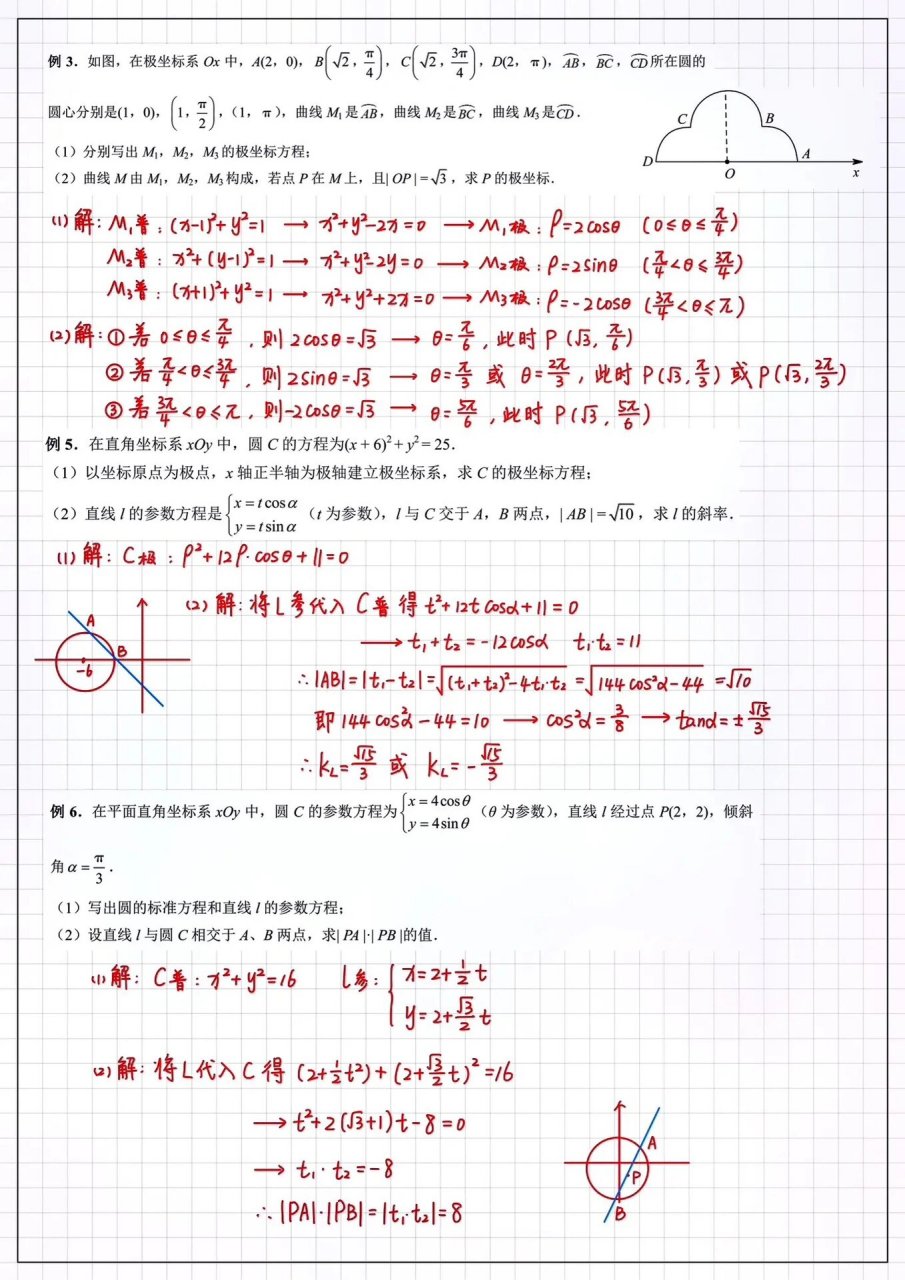 例 3．如图，在极坐标系 Ox 中，A(2，0)，B(√2，π/4)，C(√2，3π/4)，D(2，π)，⌒AB，⌒BC，⌒CD所在圆的
圆心分别是(1，0)，(1，π/2)，(1，π)，曲线 M₁ 是⌒AB，曲线 M₂ 是⌒BC，曲线 M₃ 是⌒CD．
（1）分别写出 M₁，M₂，M₃的极坐标方程；
（2）曲线 M 由 M₁，M₂，M₃构成，若点 P 在 M 上，且| OP | = √3，求 P 的极坐标．
C B
D A
O x
(1) 解：M₁普：(x-1)²+y²=1 → x²+y²-2x=0 → M₁极：ρ=2cosθ (0≤θ≤π/4)
M₂普：x²+(y-1)²=1 → x²+y²-2y=0 → M₂极：ρ=2sinθ (π/4<θ≤3π/4)
M₃普：(x+1)²+y²=1 → x²+y²+2x=0 → M₃极：ρ=-2cosθ (3π/4<θ≤π)
(2) 解：① 若 0≤θ≤π/4，则 2cosθ=√3 → θ=π/6，此时 P (√3, π/6)
② 若 π/4<θ≤3π/4，则 2sinθ=√3 → θ=π/3 或 θ=2π/3，此时 P(√3, π/3) 或 P(√3, 2π/3)
③ 若 3π/4<θ≤π，则-2cosθ=√3 → θ=5π/6，此时 P (√3, 5π/6)
例 5．在直角坐标系 xOy 中，圆 C 的方程为(x + 6)² + y² = 25．
（1）以坐标原点为极点，x 轴正半轴为极轴建立极坐标系，求 C 的极坐标方程；
（2）直线 l 的参数方程是{x = t cos α y = t sin α（t 为参数），l 与 C 交于 A，B 两点，| AB | = √10，求 l 的斜率．
(1) 解：C极：ρ²+12ρ·cosθ+11=0
A
B
-6
(2) 解：将L参代入 C普 得 t²+12t cosα+11=0
→ t₁+t₂=-12cosα t₁·t₂=11
∴|AB|=|t₁-t₂|=√((t₁+t₂)²-4t₁·t₂)=√(144cos²α-44)=√10
即 144cos²α-44=10 → cos²α=3/8 → tanα=±√15/3
∴ kL=√15/3 或 kL=-√15/3
例 6．在平面直角坐标系 xOy 中，圆 C 的参数方程为{x = 4cos θ y = 4sin θ（θ 为参数），直线 l 经过点 P(2，2)，倾斜
角 α = π/3．
（1）写出圆的标准方程和直线 l 的参数方程；
（2）设直线 l 与圆 C 相交于 A、B 两点，求| PA |·| PB |的值．
(1) 解：C普：x²+y²=16 L参：{x=2+1/2 t
y=2+√3/2 t
(2) 解：将L代入 C 得 (2+1/2 t²)+(2+√3/2 t)²=16
→ t²+2(√3+1)t-8=0
→ t₁·t₂=-8
∴|PA|·|PB|=|t₁·t₂|=8
A
P
B